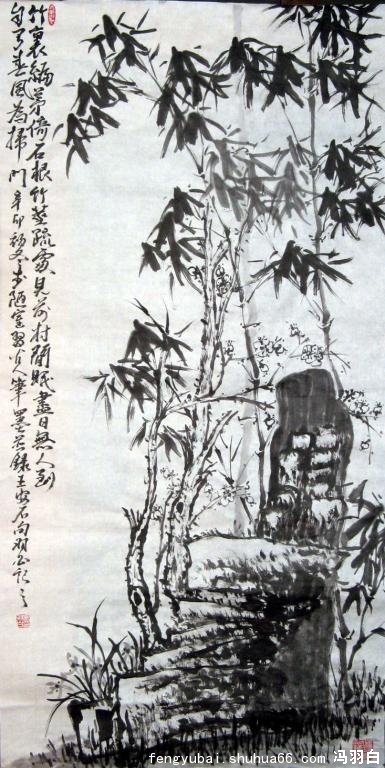 竹裏編茅倚石根竹莖疏處見前村閒眠盡日無人到
自有春風為掃門辛卯初冬於陋室習人筆墨錄王安石句羽白記之
fengyubai.shuhua66.com 冯羽白